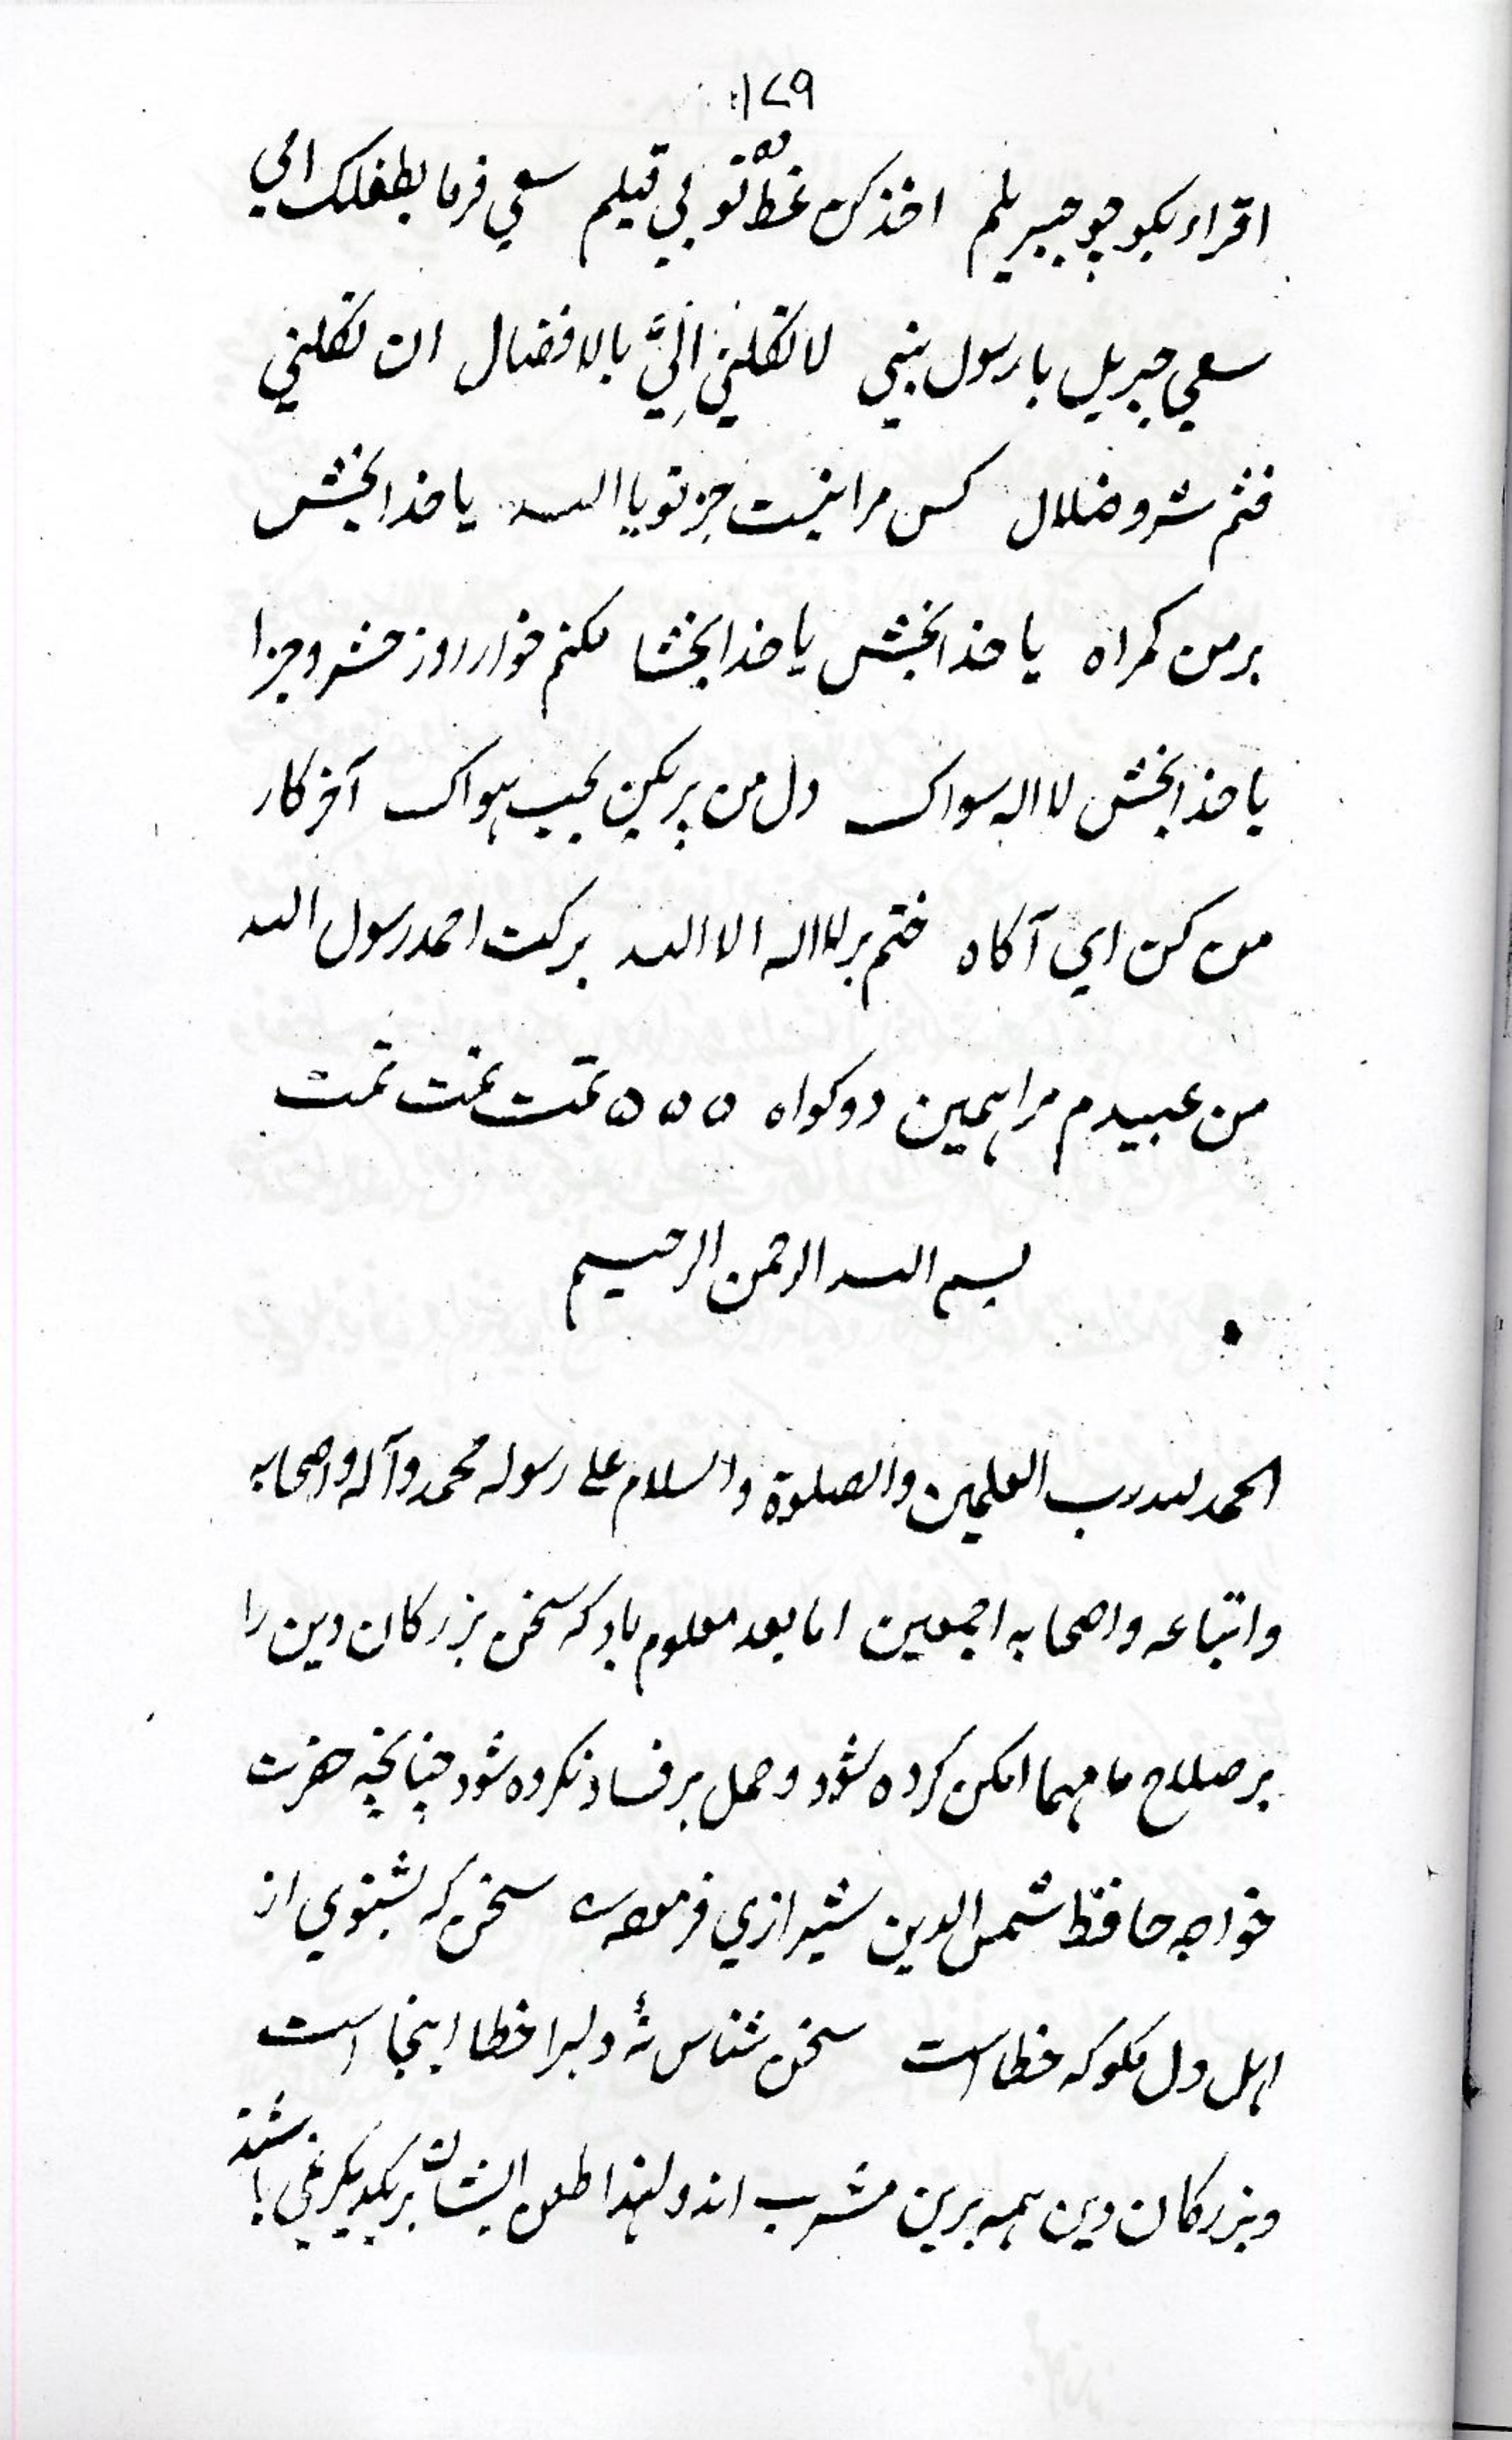 ۱۷۹
اقراء بكو چو جبريلم اخذ كن غطّ تو بي قيلم سعي فرما بطفلك امي
سعي جبريل با رسول نبي لا تكلني اليَّ بالافضال ان تكلني
فثم شر و ضلال كس مرا نيست جز تو يا الله يا خدا بخش
بر من كمراه يا خدا بخش يا خدا بخشا مكنم خوار روز حشر و جزا
يا خدا بخش لا اله سواك دل من پر بكن بحب هواك آخر كار
من كن اي آكاه ختم بر لا اله الا الله بركت احمد رسول الله
من عبيدم مرا همين دو كواه ۵ ۵ ۵ تمت تمت تمت
بسم الله الرحمن الرحيم
الحمد لله رب العلمين والصلوة والسلام على رسوله محمد وآله واصحابه
واتباعه واصحابه اجمعين اما بعد معلوم باد كه سخن بزركان دين را
بر صلاح ما مهما امكن كرده شود وحمل بر فساد نكرده شود چنانچه حضرت
خواجه حافظ شمس الدين شيرازي فرموده سخن كه بشنوي از
اهل دل مكو كه خطا است سخن شناس نهٔ دلبرا خطا اينجا است
وبزركان دين همه برين مشرب اند ولهذا طعن ايشان بر يكديكر نمي باشند